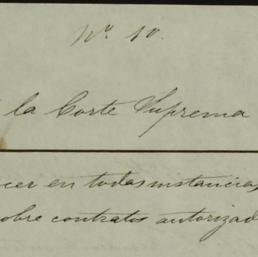 Nº 10.
la Corte Suprema
cer en todas instancias,
sobre contratos autorizad